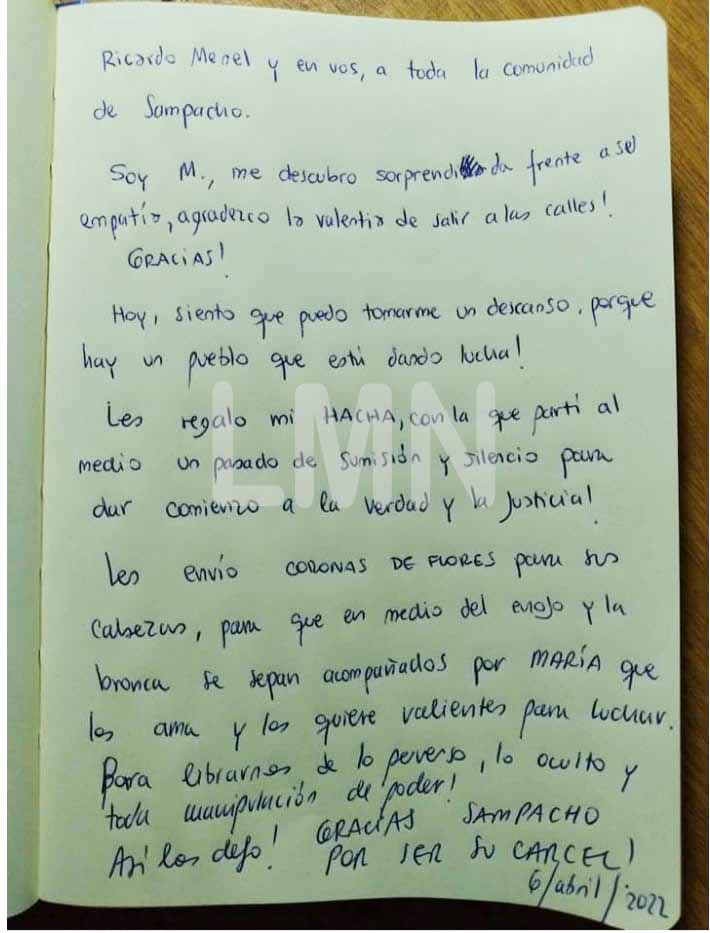 Ricardo Menel y en vos, a toda la comunidad
de Sampacho.
Soy M., me descubro sorprendida frente a sel
empatía, agradezco la valentía de salir a las calles!
GRACIAS!
Hoy, siento que puedo tomarme un descanso, porque
hay un pueblo que está dando lucha!
Les regalo mi HACHA, con la que partí al
medio un pasado de sumisión y silencio para
dar comienzo a la verdad y la justicia!
Les envío CORONAS DE FLORES para sus
cabezas, para que en medio del enojo y la
bronca se sepan acompañados por MARÍA que
los ama y los quiere valientes para luchar.
Para librarnos de lo perverso, lo oculto y
toda manipulación de poder!
Así los dejo! GRACIAS SAMPACHO
POR SER SU CARCEL!
6/abril/2022
LMN